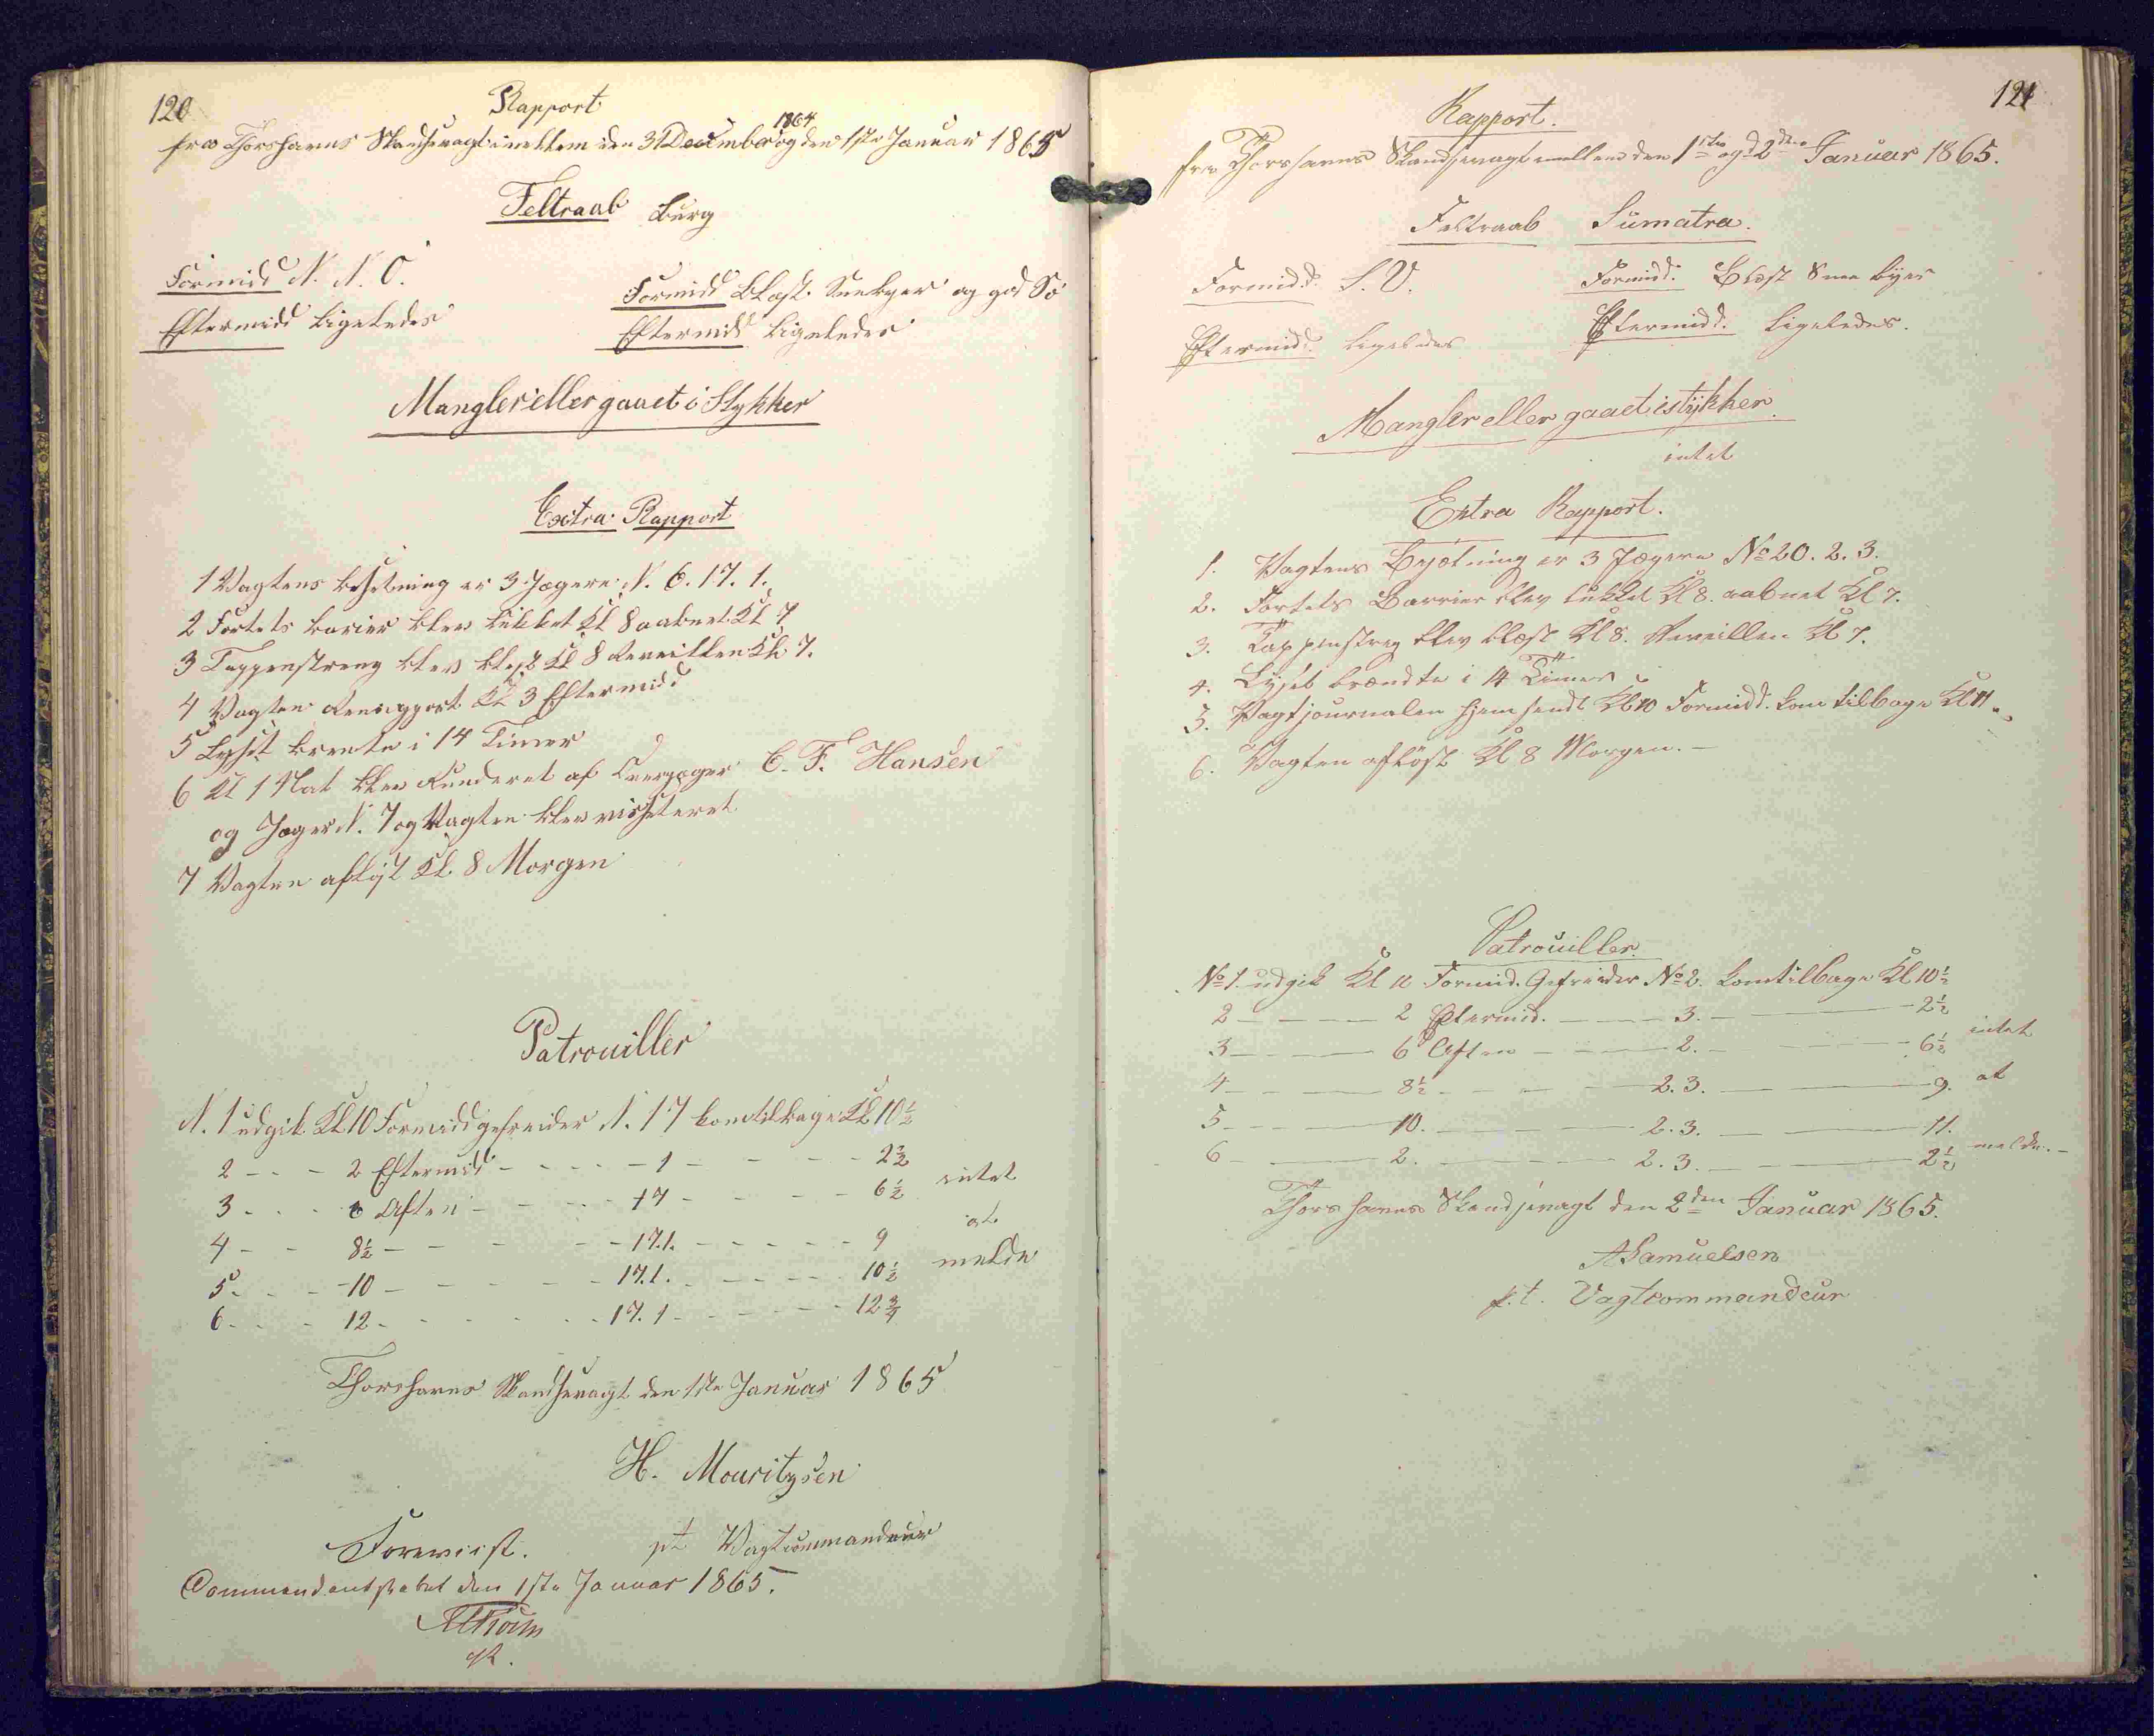 120
Rapport
fra Thorshavns Skandsevagt imellem den 31 December 1864 og den 1ste Januar 1865
Feltraab Burg
Formidd N. N. O.
Eftermidd Ligeledes
Formidd Blæst Sneebyer og god Sö
Eftermidd Ligeledes
Mangler eller gaaet i Stykker
Extra Rapport
1 Vagtens besetning er 3 Jægere N. 6. 17. 1.
2 Fortets barier blev lukket Kl 8 aabnet Kl 7
3 Tappenstreng blev blæst Kl 8 Reveillen Kl. 7.
4 Vagten Kl 3 Eftermidd
5 Lyset brente i 14 Timer
6 Kl 1 Nat blev Runderet af Overjæger C. F. Hansen
og Jæger N. 7 og Vagten blev visiteret
7 Vagten aflöst Kl. 8 Morgen
Patrouiller
N. 1 udgik Kl 10 Formidd gefreider N. 17 kom tilbage Kl 10½
2 - - - 2 Eftermidd - - - - 1 - - - - 2½
3 - - - 6 Aften - - - 17 - - - - 6½ intet
4 - - 8½ - - - - 17.1. - - - - 9 at
5 - - - 10 - - - - 17.1. - - - - 10½ melde
6 - - - 12 - - - - 17. 1 - - - - 12¾
Thorshavns Skandsevagt den 1ste Januar 1865
H. Mouritzsen
pt Vagtcommandeur
Foreviist.
Commandantskabet den 1ste Januar 1865.
121
Rapport.
fra Thorshavns Skandsevagt mellem den 1ste og 2den Januar 1865.
Feltraab Sumatra.
Formidd. S. V.
Eftermidd. ligeledes
Formidd. Blæst Snee byer
Eftermidd. ligeledes.
Mangler eller gaaet istykker.
intet
Extra Rapport.
1. Vagtens Besætning er 3 Jægere No 20. 2. 3.
2. Fortets Barrier blev lukket Kl 8. aabnet Kl 7.
3. Tappenstreg blev blæst Kl 8. Reveillen Kl 7.
4. Lyset brændte i 14 Timer
5. Vagtjournalen hjemsendt Kl 10 Formidd. kom tilbage Kl 11
6. Vagten aflöst Kl 8 Morgen. -
Patrouiller.
No 1. udgik Kl 10 Formid. Gefreider No 2. kom tilbage Kl 10½
2 - - - 2 Eftermid. - - - 3. - - - 2½
3 - - - 6 Aften - - - 2. - - - 6½ intet
4 - - - 8½ - - - 2.3. - - - 9. at
5 - - - 10. - - - 2.3. - - - 11.
6 - - - 2. - - - 2.3. - - - 2½ melde. -
Thorshavns Skandsevagt den 2den Januar 1865.
A Samuelsen
p. t. Vagtcommandeur